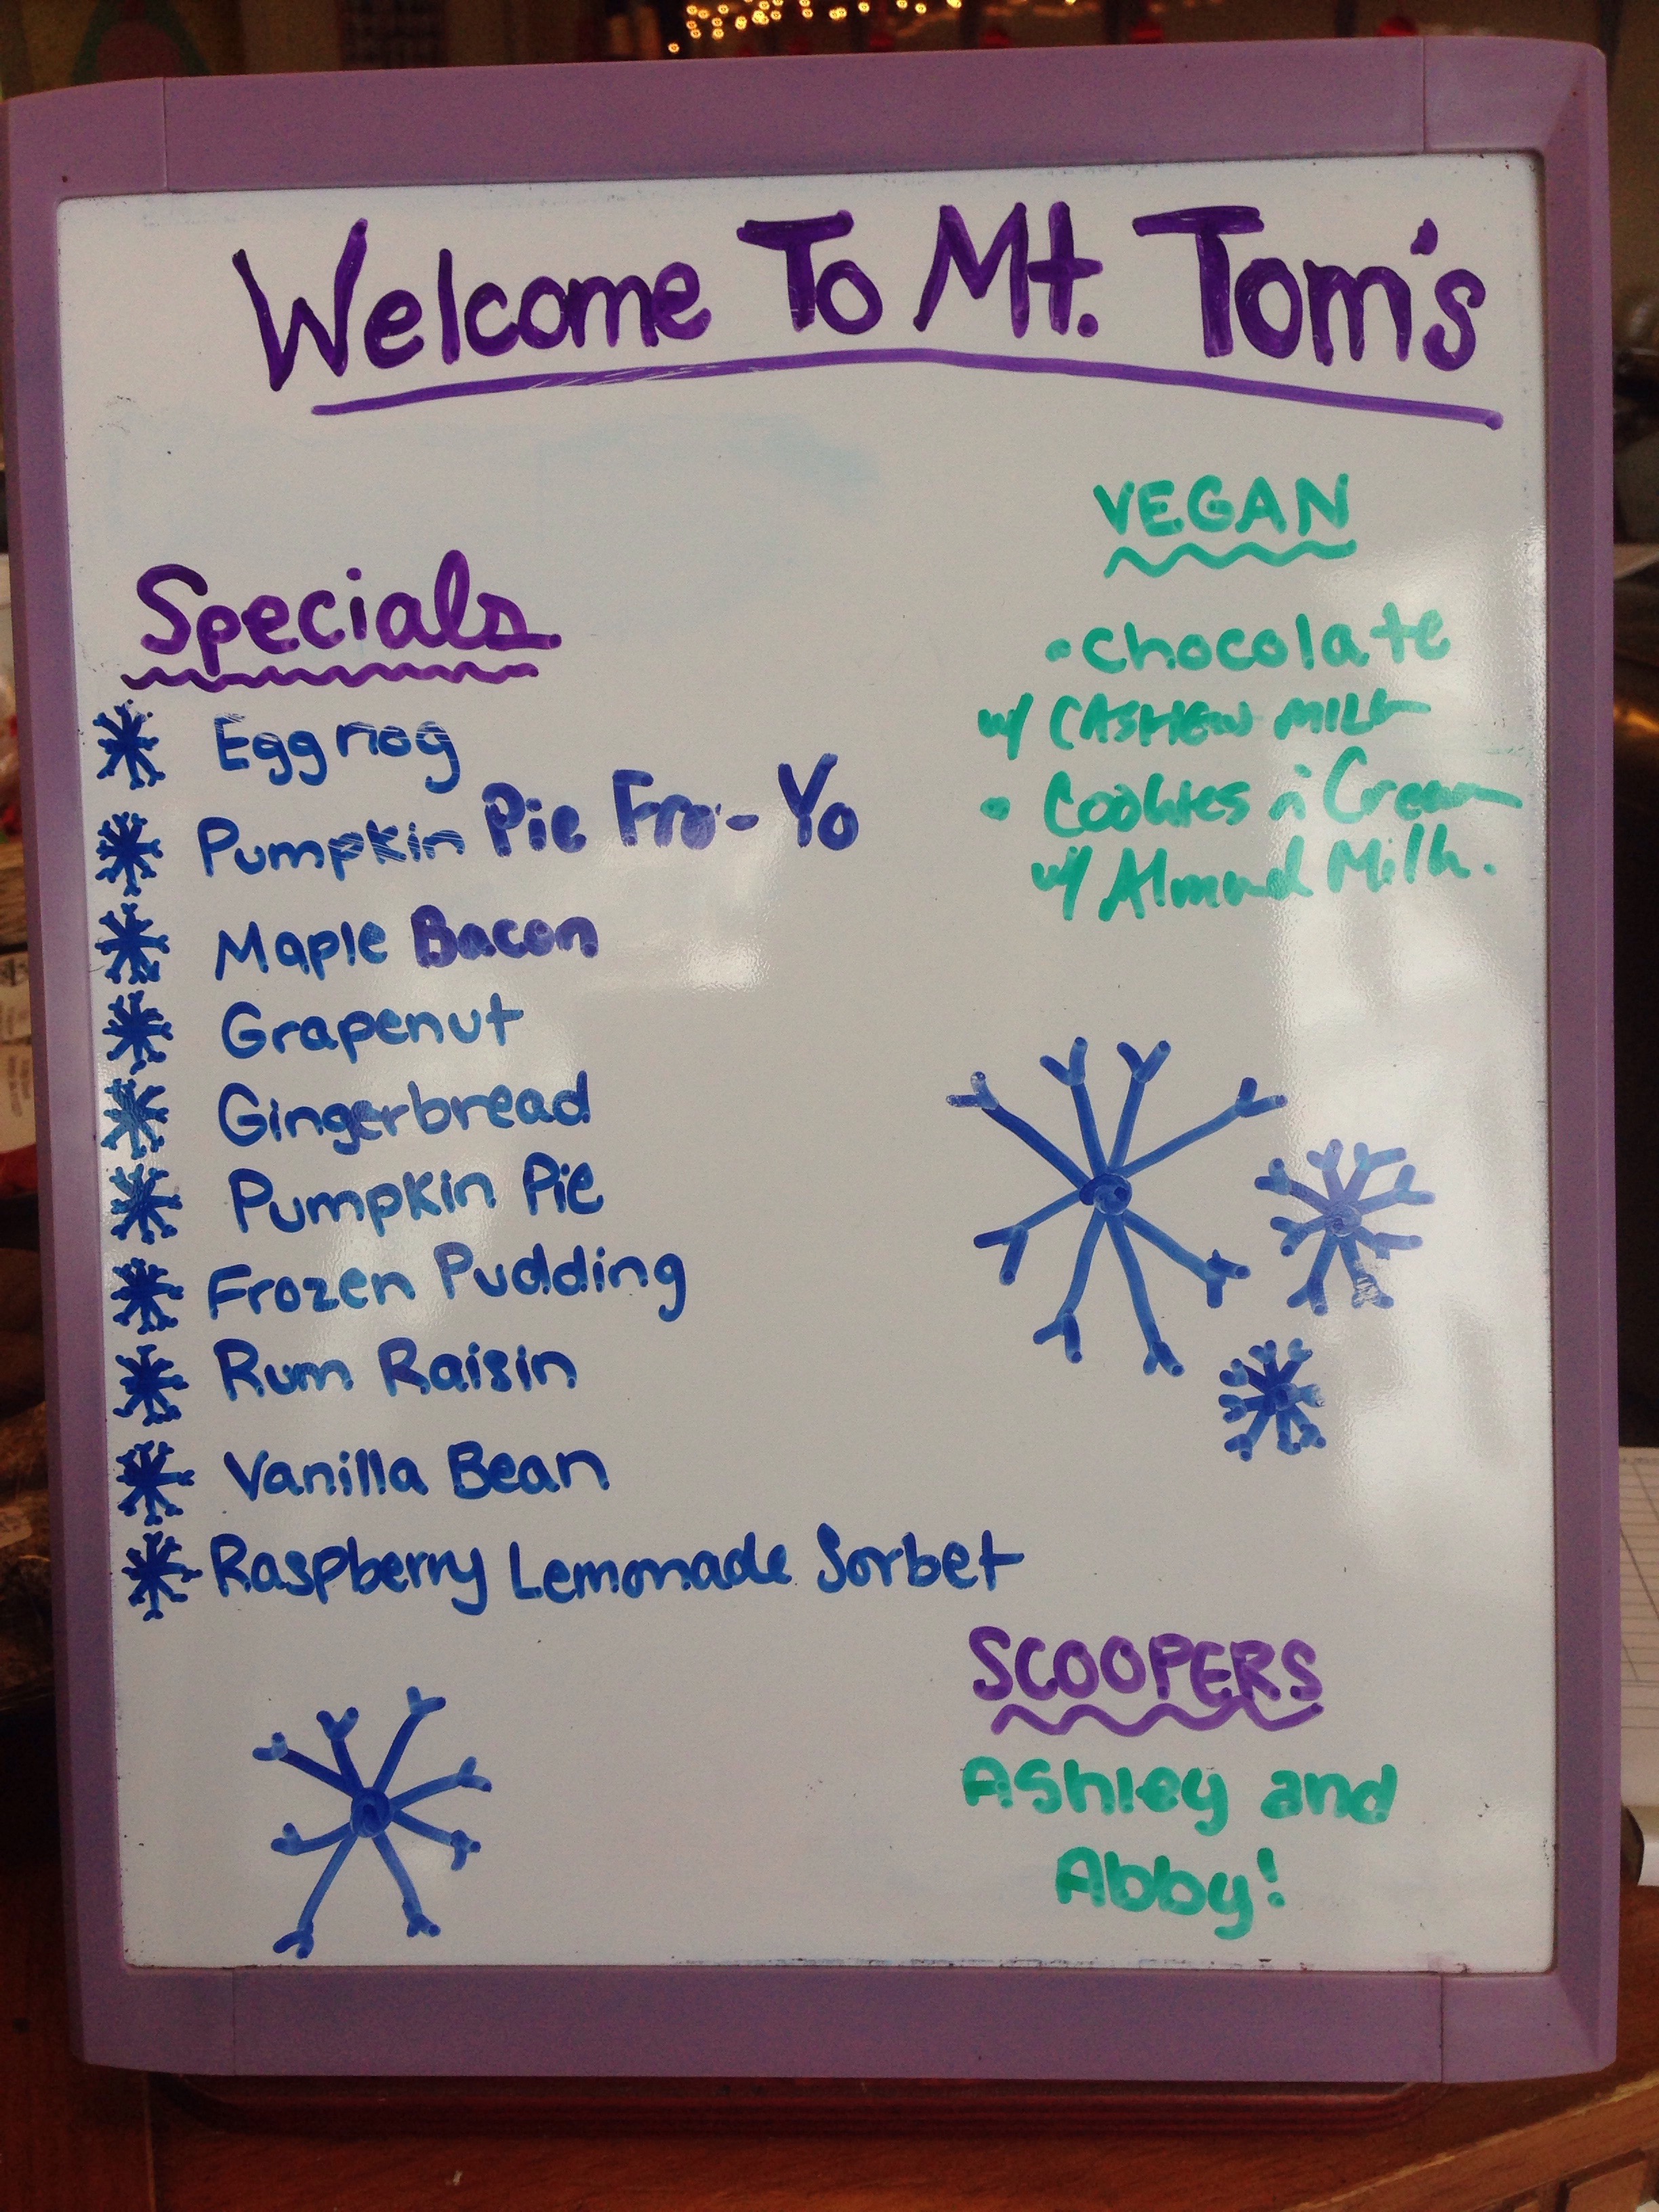 Welcome To Mt. Tom's
Specials
Eggnog
Pumpkin Pie Fro-Yo
Maple Bacon
Grapenut
Gingerbread
Pumpkin Pie
Frozen Pudding
Rum Raisin
Vanilla Bean
Raspberry Lemonade Sorbet
VEGAN
• Chocolate
w/ CASHEW MILK
• Cookies n Cream
w/ Almond Milk.
SCOOPERS
Ashley and
Abby!